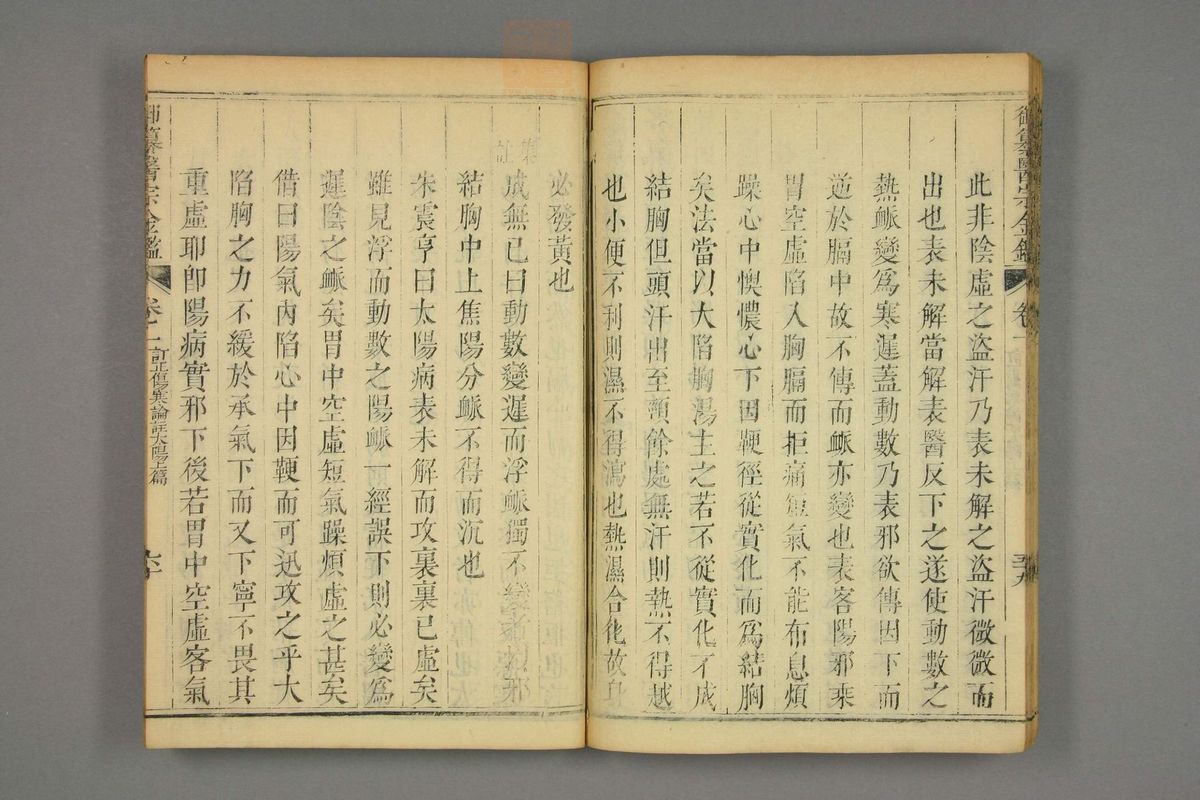 此非陰虛之盜汗乃表未解之盜汗微微而
出也表未解當解表醫反下之遂使動數之
熱脈變爲寒遲蓋動數乃表邪欲傳因下而
逆於膈中故不傳而脈亦變也表客陽邪乘
胃空虛陷入胸膈而拒痛短氣不能布息煩
躁心中懊憹心下因鞕徑從實化而爲結胸
矣法當以大陷胸湯主之若不從實化不成
結胸但頭汗出至頸餘處無汗則熱不得越
也小便不利則濕不得瀉也熱濕合化故身
御纂醫宗金鑑 卷一 五十九
必發黃也
集註
成無已曰動數變遲而浮脈獨不變
結胸中上焦陽分脈不得而沉也
朱震亨曰太陽病表未解而攻裏裏已虛矣
雖見浮而動數之陽脈一經誤下則必變爲
遲陰之脈矣胃中空虛短氣躁煩虛之甚矣
借曰陽氣內陷心中因鞕而可迅攻之乎大
陷胸之力不緩於承氣下而又下寧不畏其
重虛耶卽陽病實邪下後若胃中空虛客氣
御纂醫宗金鑑 卷一 訂正傷寒論註太陽上篇 六十